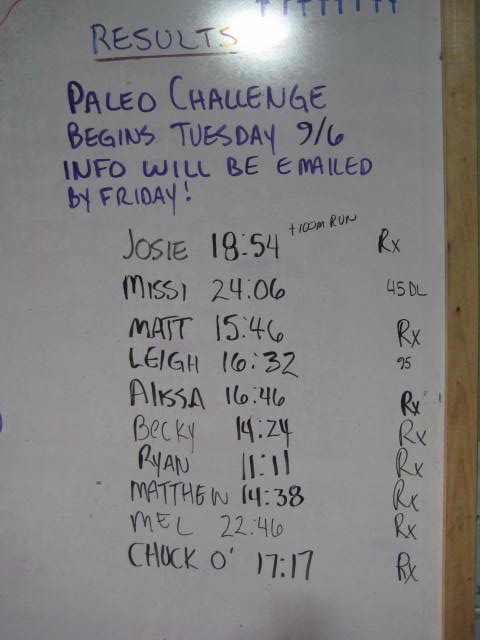 RESULTS
PALEO CHALLENGE
BEGINS TUESDAY 9/6
INFO WILL BE EMAILED
BY FRIDAY!
JOSIE 18:54 +100m RUN Rx
MISSI 24:06 45DL
MATT 15:46 Rx
LEIGH 16:32 95
AlISSA 16:46 Rx
BECKY 14:24 Rx
RYAN 11:11 Rx
MATTHEW 14:38 Rx
MEL 22:46 Rx
CHUCK O' 17:17 Rx